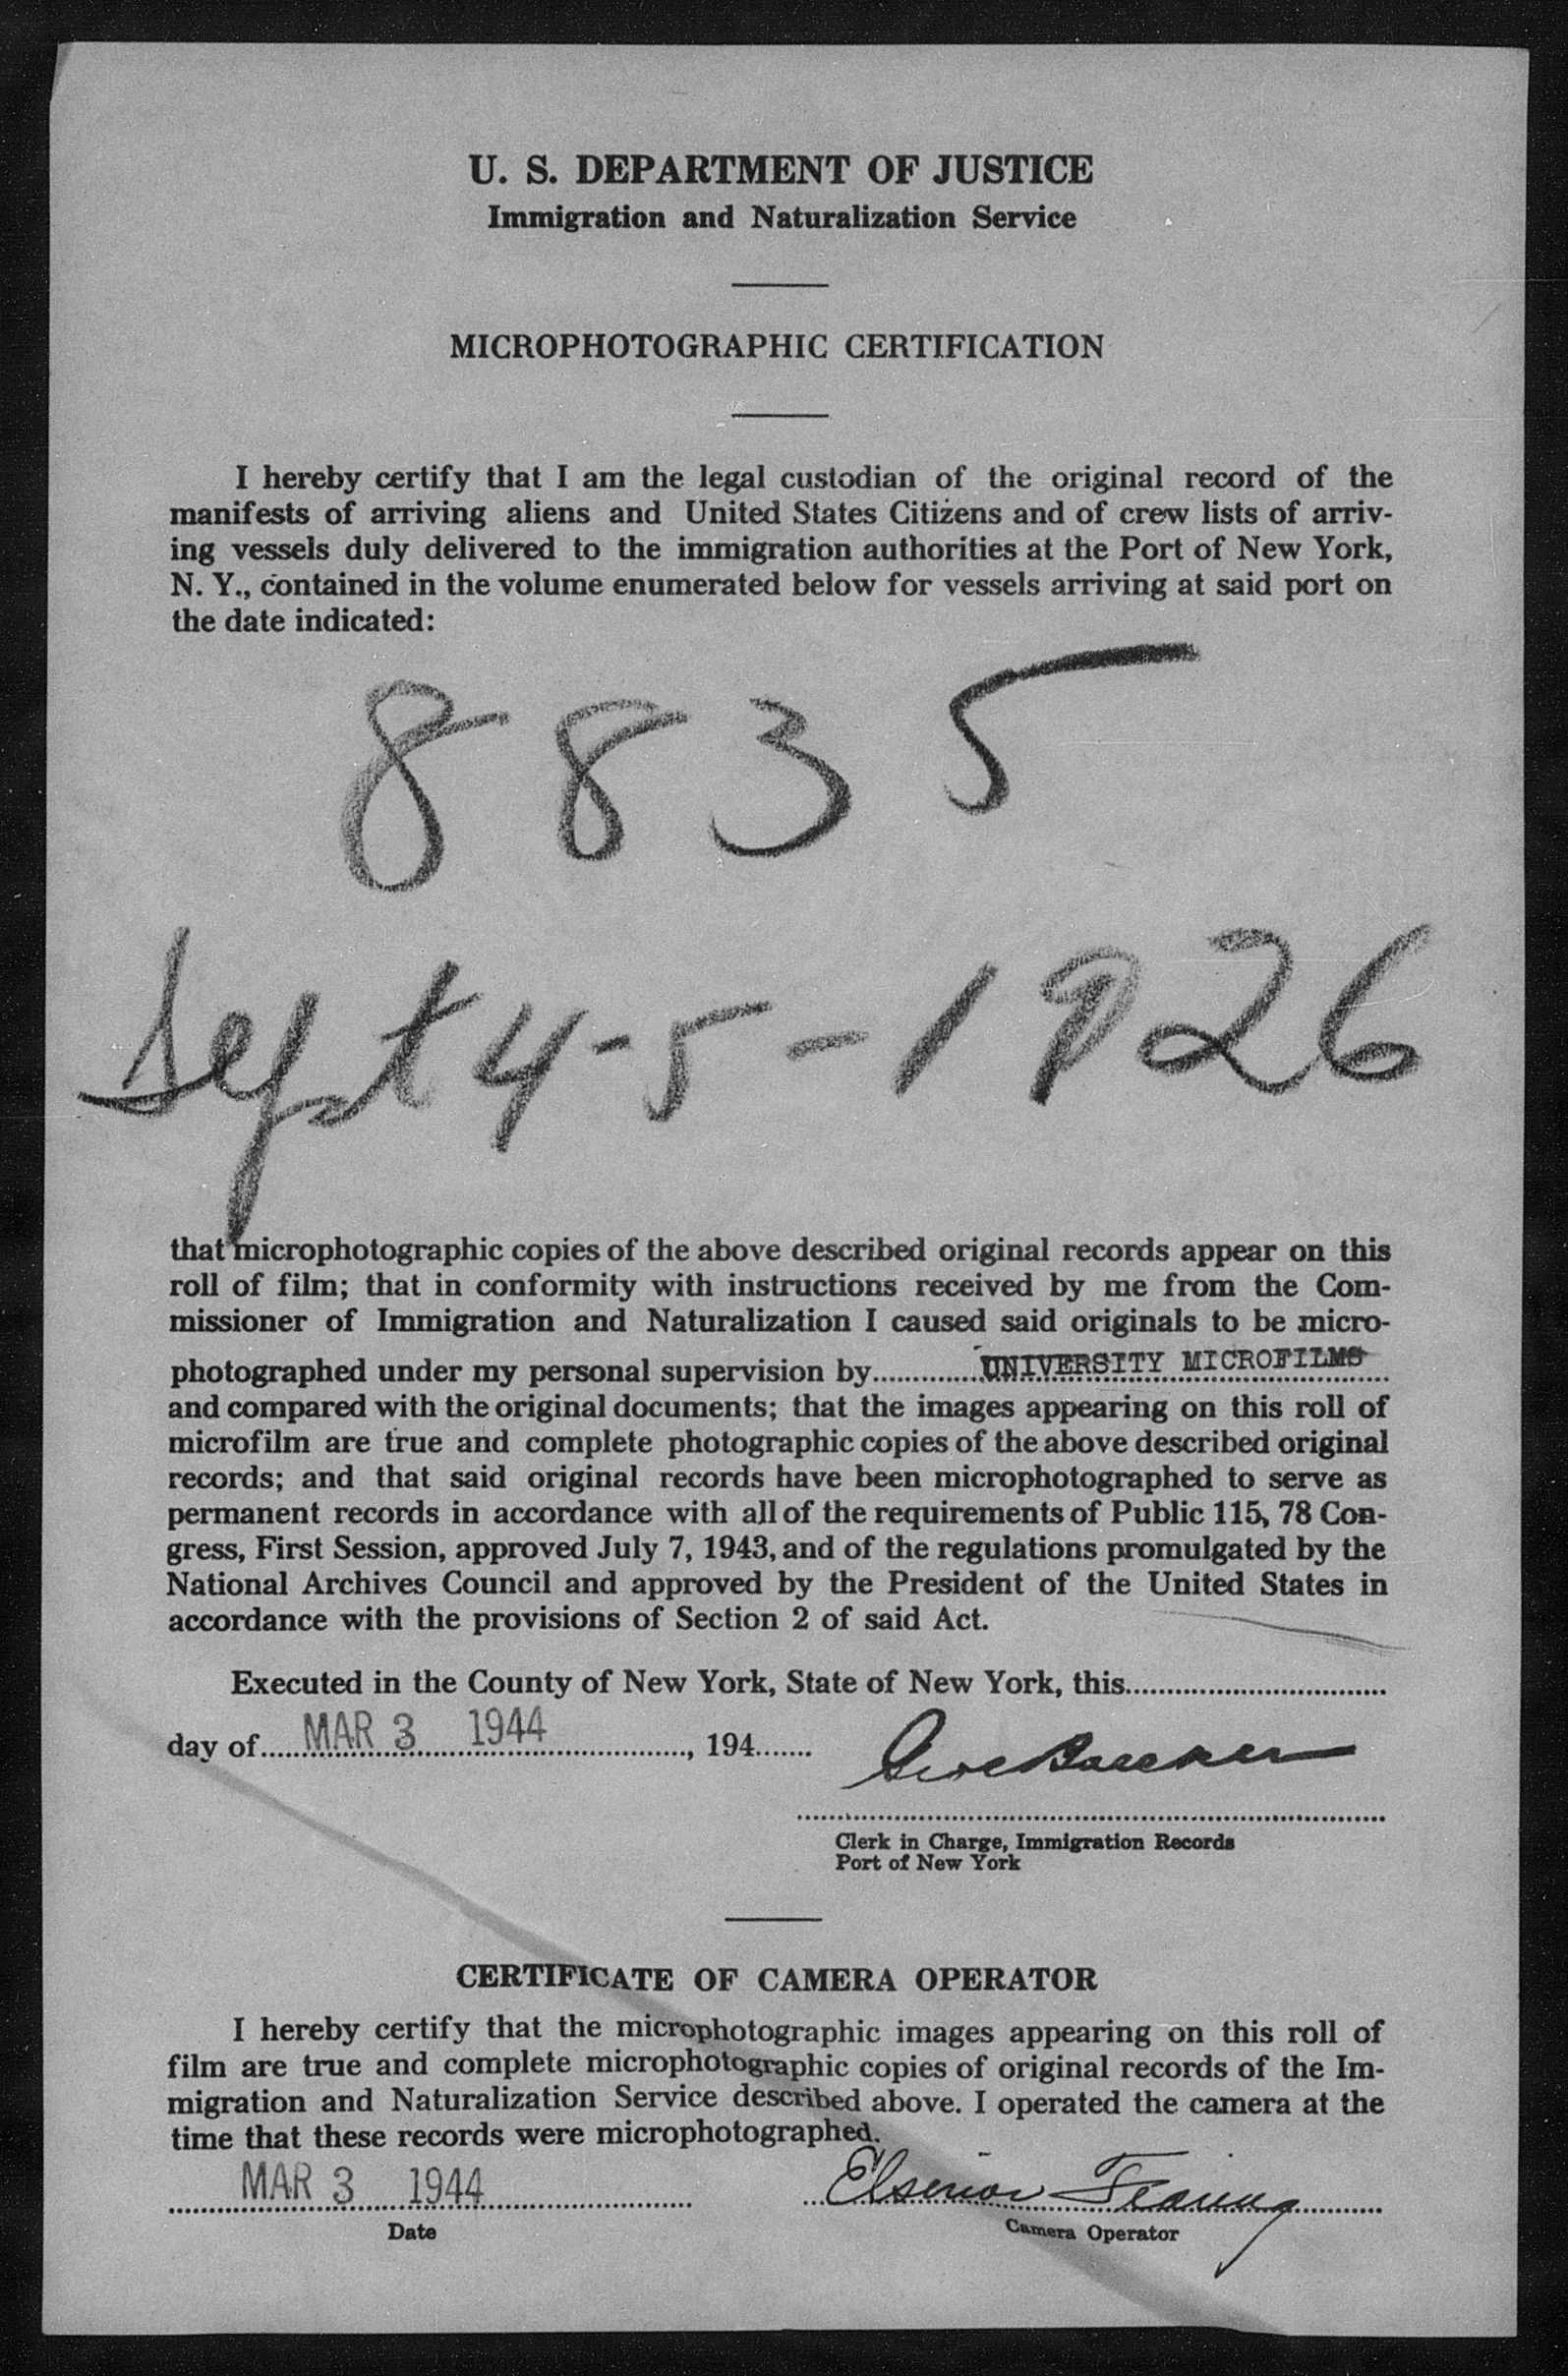 U. S. DEPARTMENT OF JUSTICE
Immigration and Naturalization Service
MICROPHOTOGRAPHIC CERTIFICATION
I hereby certify that I am the legal custodian of the original record of the
manifests of arriving aliens and United States Citizens and of crew lists of arriv-
ing vessels duly delivered to the immigration authorities at the Port of New York,
N. Y., contained in the volume enumerated below for vessels arriving at said port on
the date indicated:
8835
Sept 4-5-1926
that microphotographic copies of the above described original records appear on this
roll of film; that in conformity with instructions received by me from the Com-
missioner of Immigration and Naturalization I caused said originals to be micro-
photographed under my personal supervision by UNIVERSITY MICROFILMS
and compared with the original documents; that the images appearing on this roll of
microfilm are true and complete photographic copies of the above described original
records; and that said original records have been microphotographed to serve as
permanent records in accordance with all of the requirements of Public 115, 78 Con-
gress, First Session, approved July 7, 1943, and of the regulations promulgated by the
National Archives Council and approved by the President of the United States in
accordance with the provisions of Section 2 of said Act.
Executed in the County of New York, State of New York, this
day of MAR 3 1944, 194
Clerk in Charge, Immigration Records
Port of New York
CERTIFICATE OF CAMERA OPERATOR
I hereby certify that the microphotographic images appearing on this roll of
film are true and complete microphotographic copies of original records of the Im-
migration and Naturalization Service described above. I operated the camera at the
time that these records were microphotographed.
MAR 3 1944
Date
Camera Operator